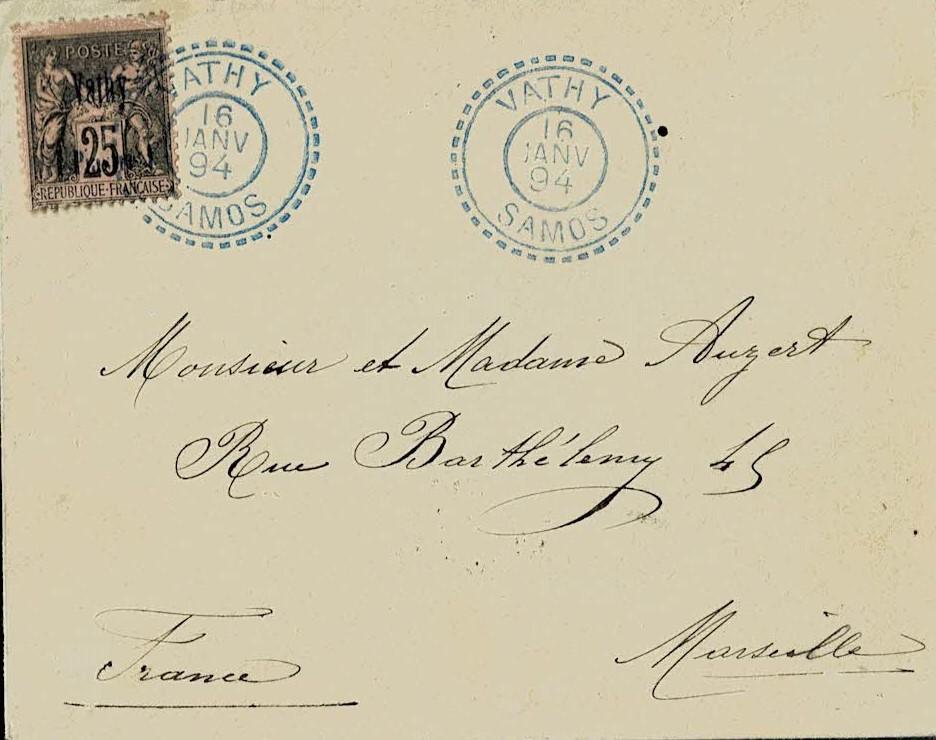 POSTE
Vathy
25
RÉPUBLIQUE-FRANÇAISE
VATHY
16
JANV
94
SAMOS
VATHY
16
JANV
94
SAMOS
Monsieur et Madame Auzert
Rue Barthélemy 45
Marseille
France